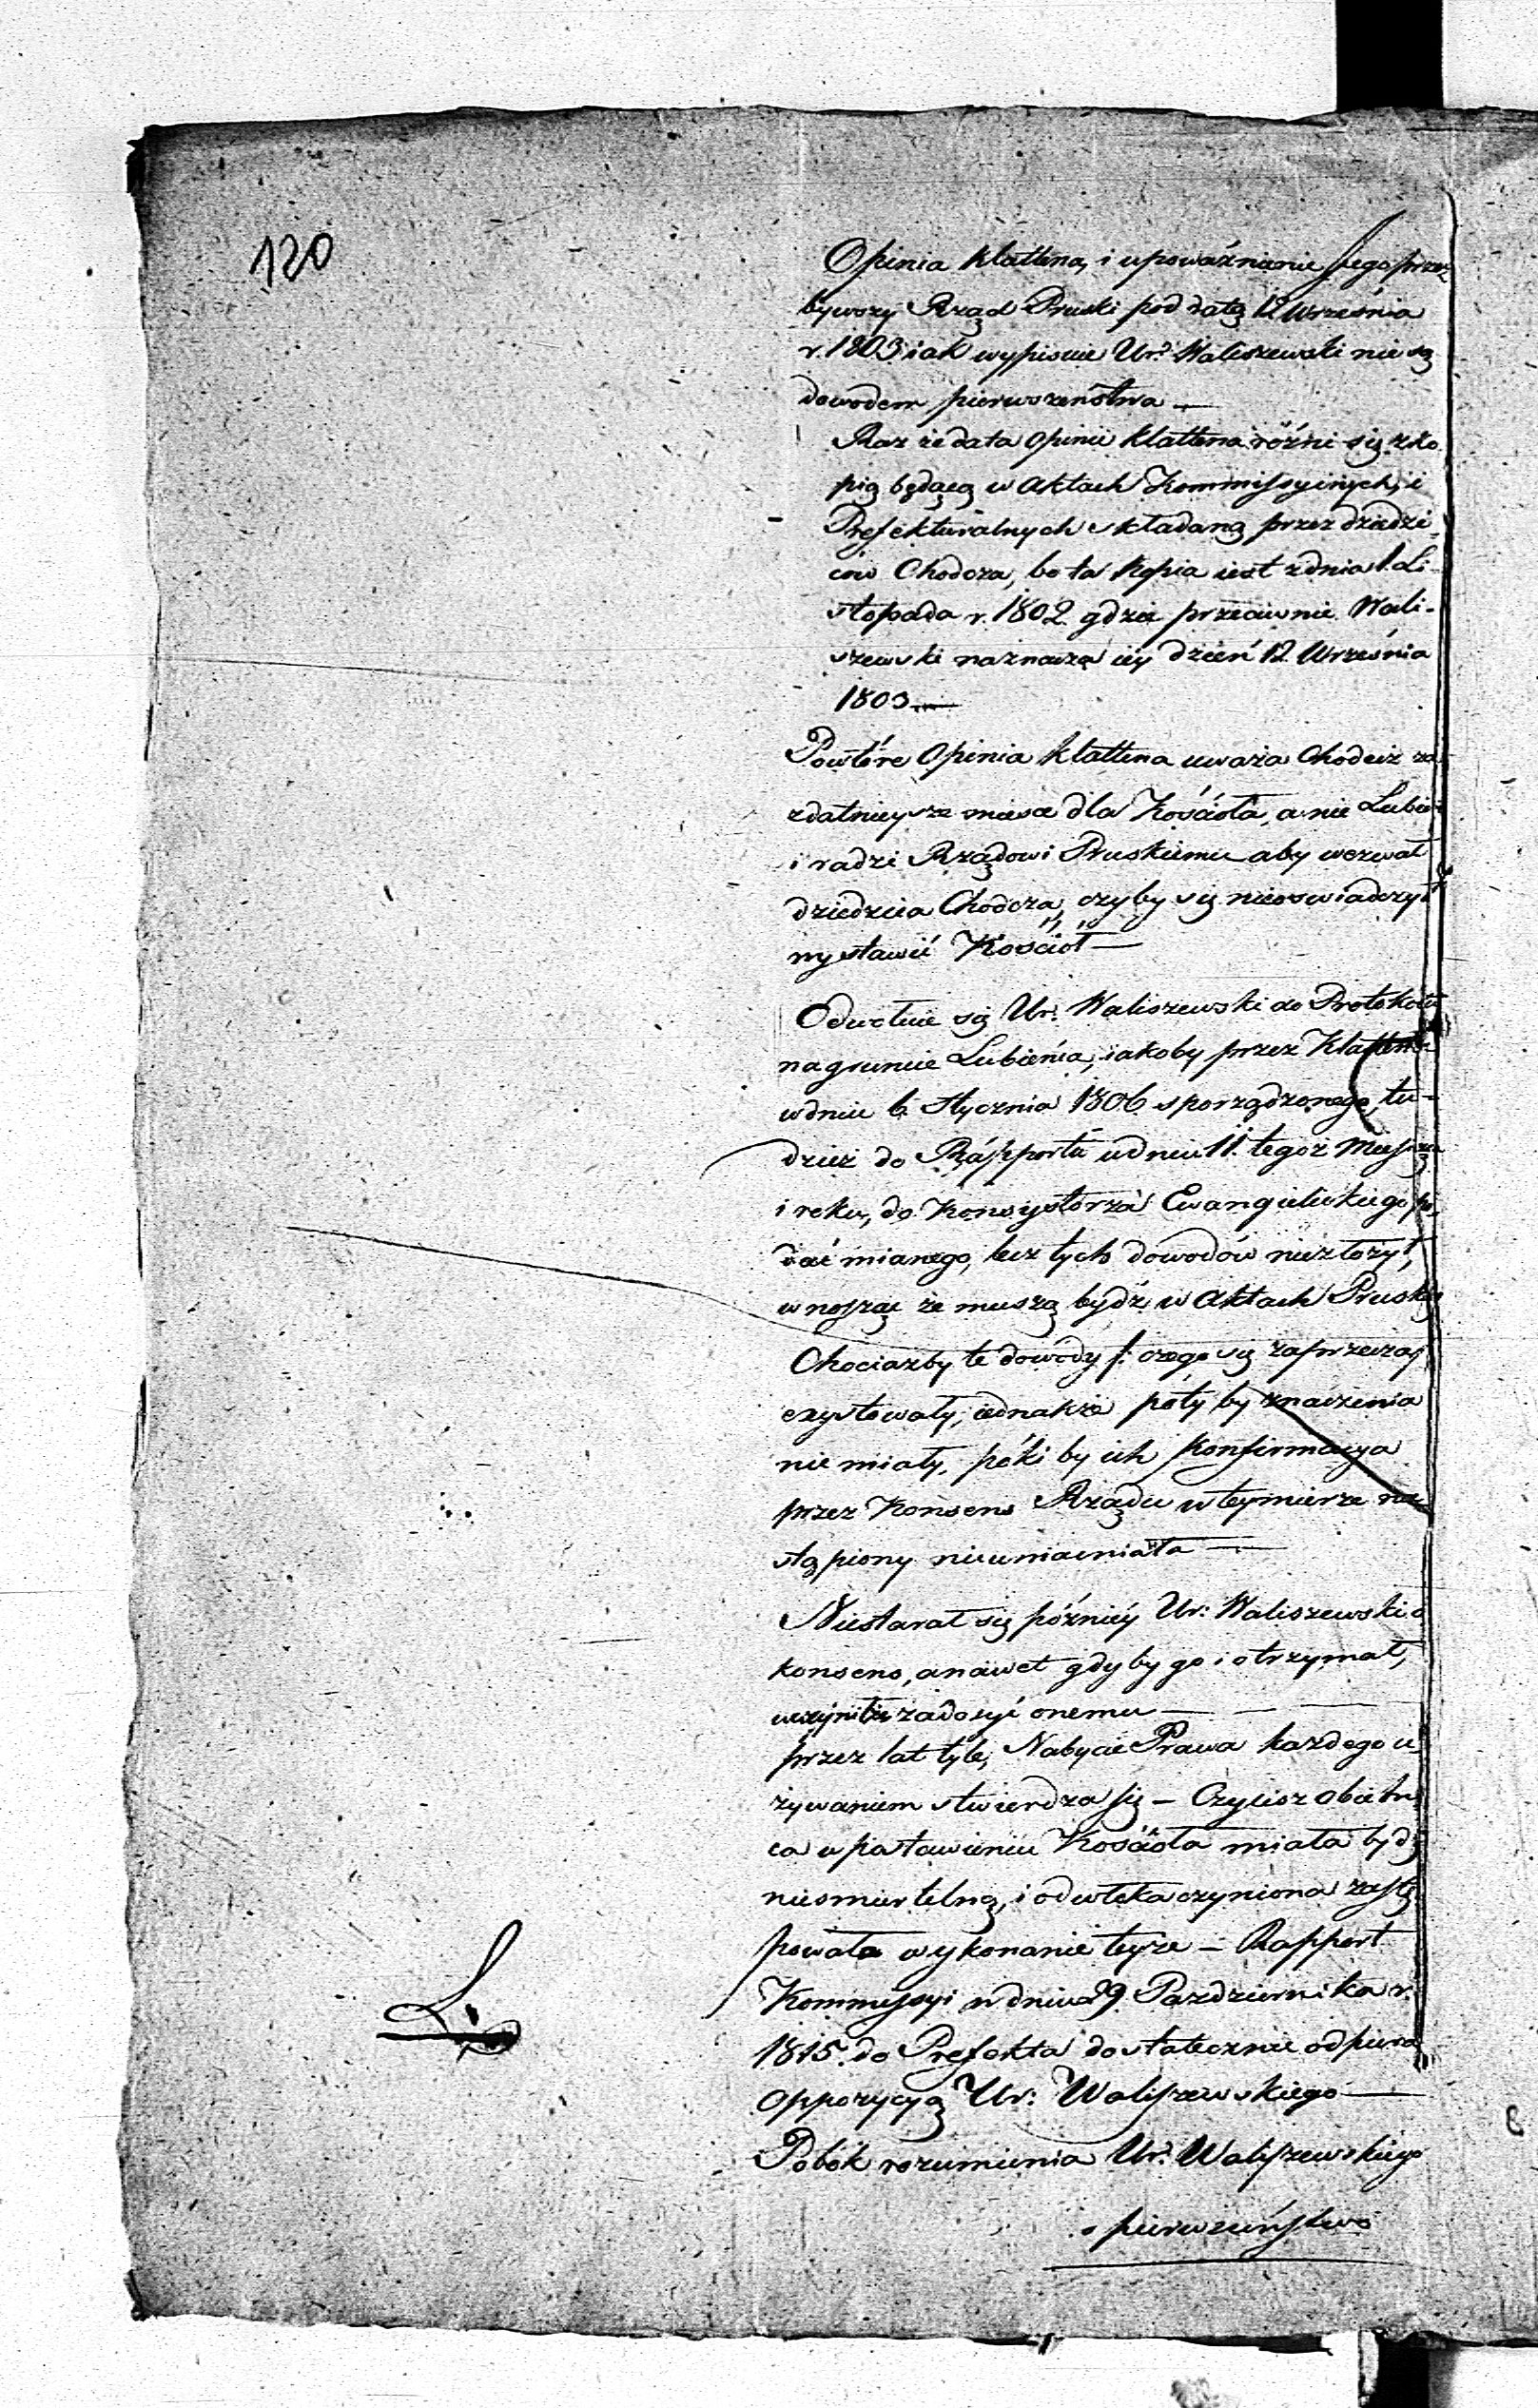 120
Opinia Klattena, i upoważnienie Jego przez
bywszy Rząd Pruski pod datą 12 Września
r. 1803 iak wypisuie Ur: Waliszewski nie są
dowodem pierwszeństwa —
Raz że data Opinii Klattena różni się z ko
pią będącą w Aktach Kommissyinych, i
Prefekturalnych składaną przez dziedzi-
ców Chodcza, bo ta Kopia iest z dnia 1. Li-
stopada r. 1802. gdzie przeciwnie Wali-
szewski naznacza iéy dzień 12. Września
1803 —
Powtóre Opinia Klattena uważa Chodecz za
zdatnieysze miesce dla Kościoła, a nie Lubień
i radzi Rządowi Pruskiemu aby wezwał
dziedzica Chodcza, czyby się nieoswiadczył
wystawić Kościół —
Odwołuie się Ur: Waliszewski do Protokołu
na gruncie Lubienia, iakoby przez Klattena
w dniu 6 Stycznia 1806 sporządzonego, tu-
dzież do Rapportu w dniu 11. tegoż Miesiąca
i roku, do Konsystorza Ewangelickiego po-
dać mianego, lecz tych dowodów niezłożył,
wnosząc że muszą bydź w Aktach Pruskich
Chociażby te dowody /: czego się zaprzecza :/
exystowały, iednakże poty by znaczenia
nie miały, póki by ich Konfirmacya
przez Konsens Rządu w teymierze na-
stąpiony nieumacniała —
Niestarał się późniéy Ur: Waliszewski o
konsens, a nawet gdyby go i otrzymał,
uczyniłże zadosyć onemu —
przez lat tyle, Nabycie Prawa każdego u-
żywaniem stwierdza się — Czylisz obietni
ca w postawieniu Kościoła miała bydź
niesmiertelną, i odwłoka czyniona zastę
powała wykonanie teyże — Rapport
Kommissyi w dniu 29. Pazdziernika r.
1815. do Prefekta dostatecznie odpiera
oppozycyą Ur: Waliszewskiego —
Pobok rozumienia Ur: Waliszewskiego
o pierwszeństwo